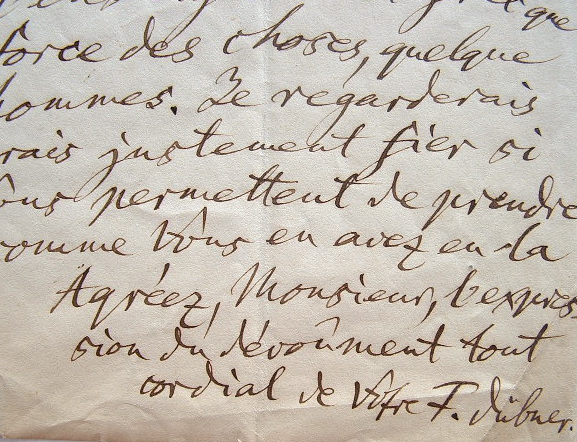 que
force des choses, quelque
hommes. Je regarderais
rais justement fier si
ous permettent de prendre
comme Vous en avez en la
Agréez, Monsieur, l'expres
sion du dévoûment tout
cordial de Vôtre F. Dübner.